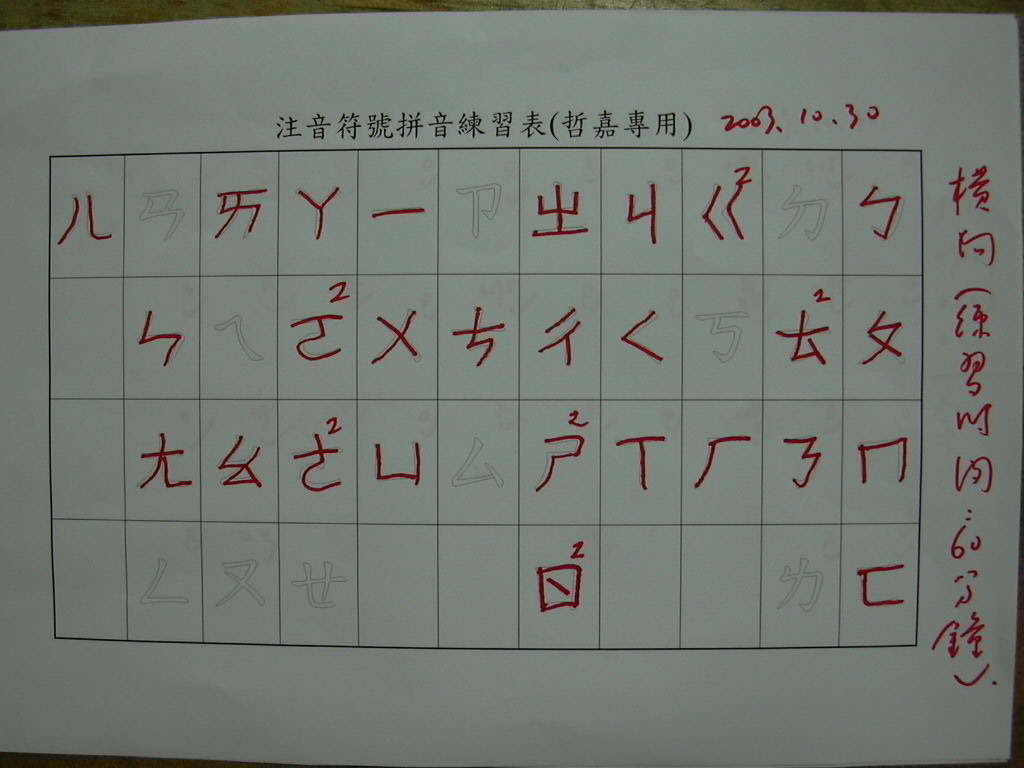 注音符號拼音練習表(哲嘉專用) 2003.10.30
ㄦ ㄢ ㄞ ㄚ ㄧ ㄗ ㄓ ㄐ ㄍ2 ㄉ ㄅ
ㄣ ㄟ ㄛ2 ㄨ ㄘ ㄔ ㄑ ㄎ ㄊ2 ㄆ
ㄤ ㄠ ㄜ2 ㄩ ㄙ ㄕ2 ㄒ ㄏ ㄋ ㄇ
ㄥ ㄡ ㄝ ㄖ2 ㄌ ㄈ
橫向(練習時間:60分鐘).